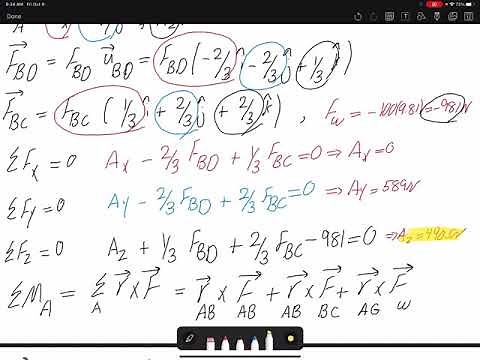 9:34 AM Fri Oct 9
73%
Done
A
F⃗_BD = F_BD u⃗_BD = F_BD(-2/3 î - 2/3 ĵ + 1/3 k̂)
F⃗_BC = F_BC (1/3 î + 2/3 ĵ + 2/3 k̂) , F_W = -100(9.81) = -981N
ΣF_x = 0 A_x - 2/3 F_BD + 1/3 F_BC = 0 ⇒ A_x = 0
ΣF_y = 0 A_y - 2/3 F_BD + 2/3 F_BC = 0 ⇒ A_y = 589N
ΣF_z = 0 A_z + 1/3 F_BD + 2/3 F_BC - 981 = 0 ⇒ A_z = 490.5N
ΣM_A = Σ_A r⃗ x F⃗ = r⃗_AB x F⃗_AB + r⃗_AB x F⃗_BC + r⃗_AG x F⃗_W